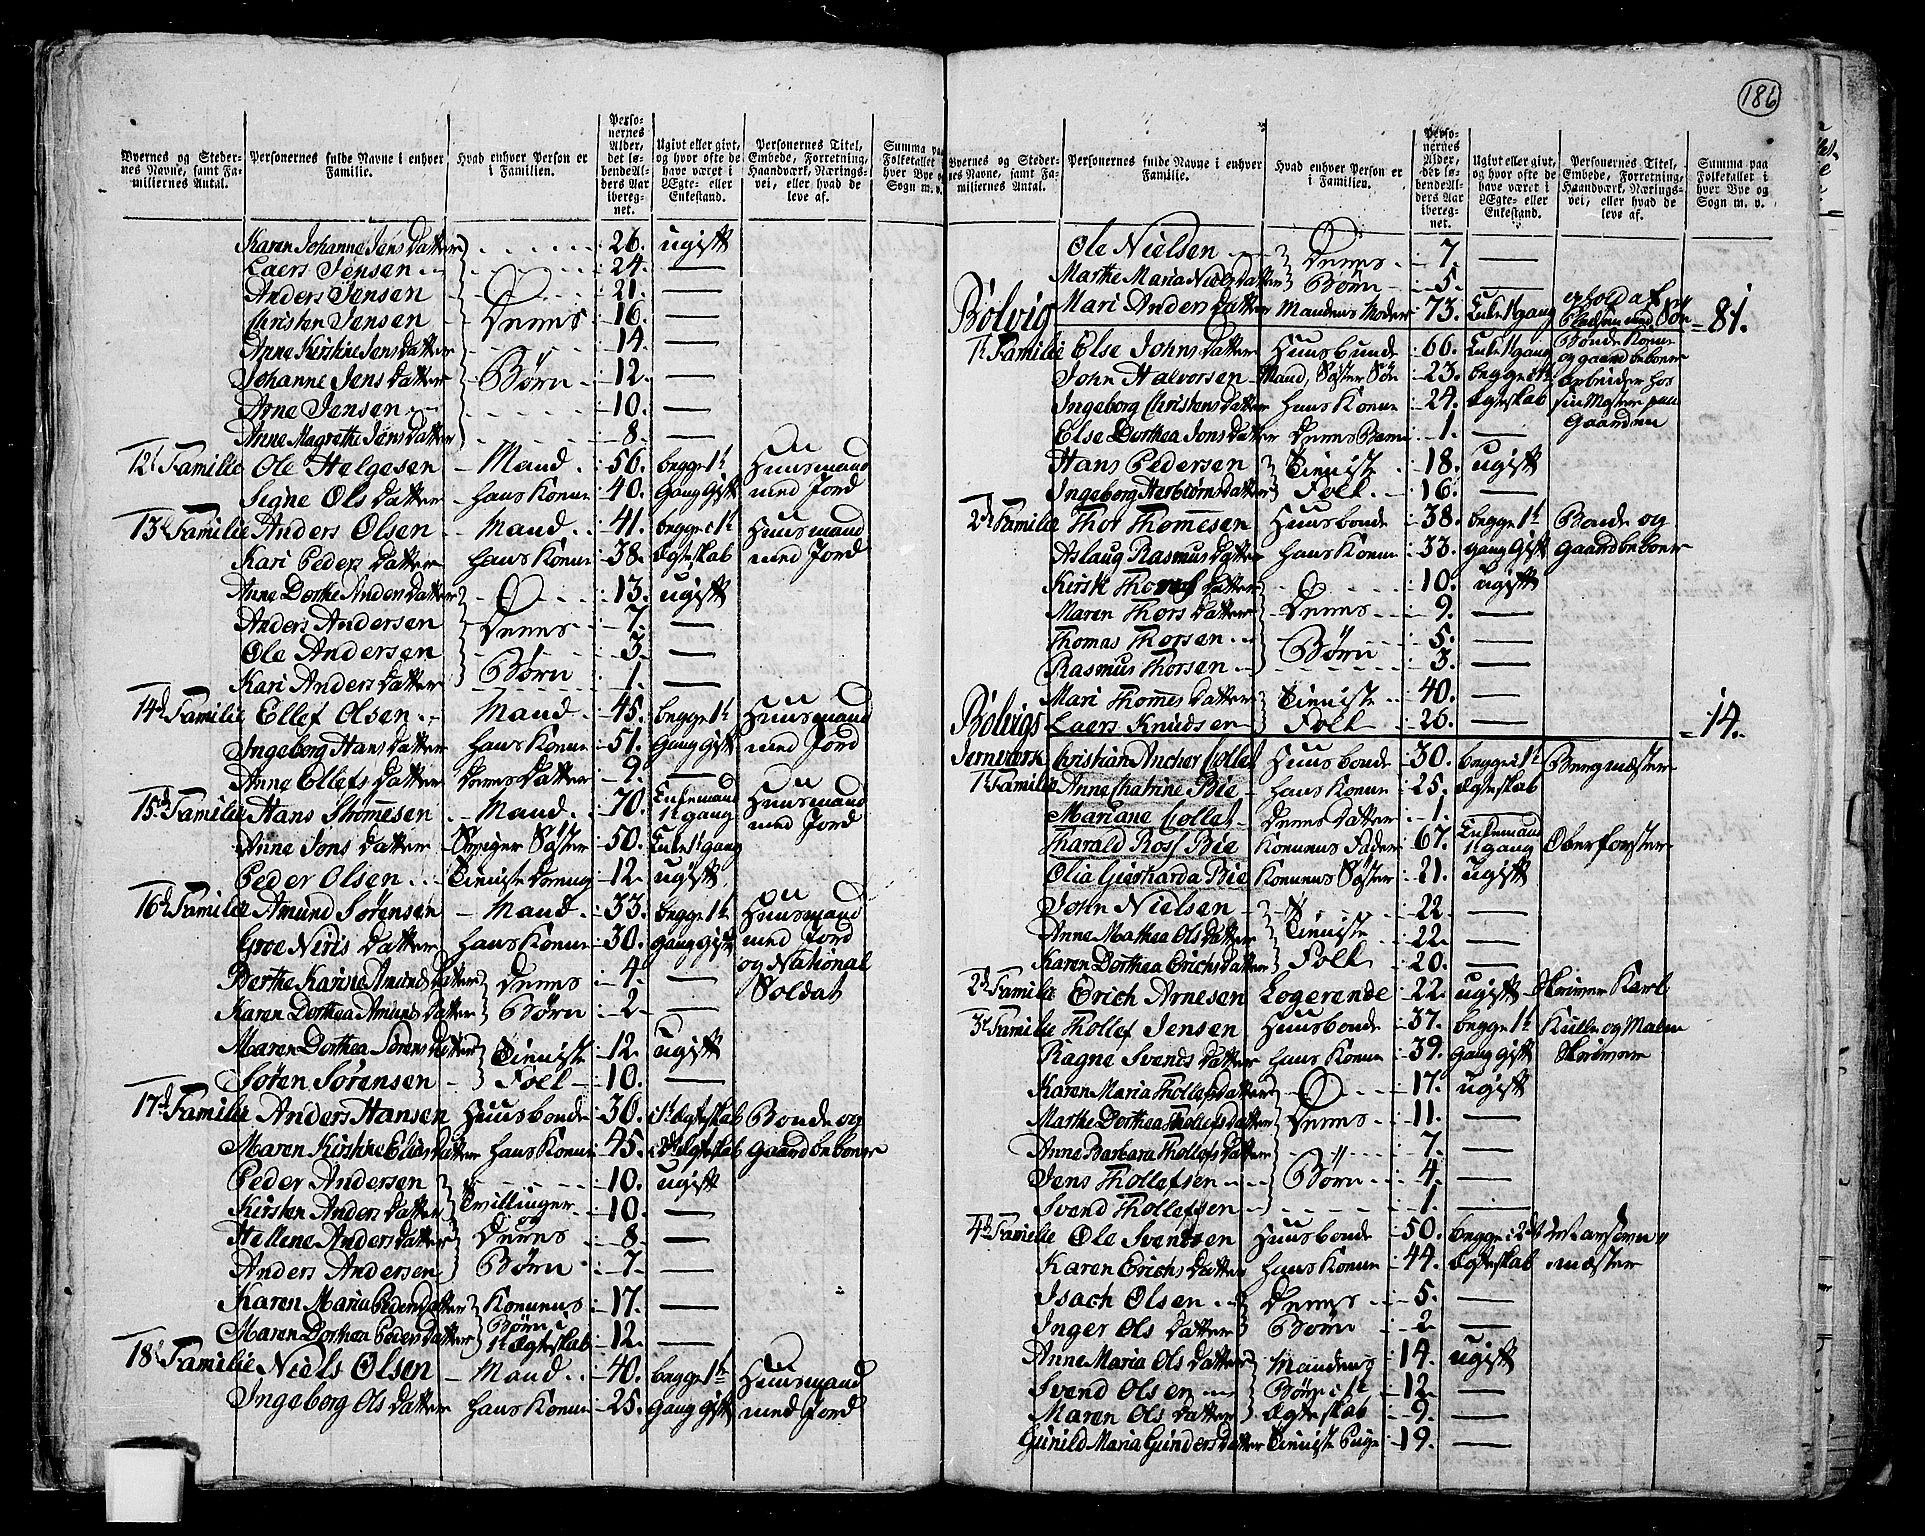 186
Byernes og Stedernes Navne, samt Familiernes Antal. Personernes fulde Navne i enhver Familie. Hvad enhver Person er i Familien. Personernes Alder, det løbende Alders Aar iberegnet. Ugivt eller givt, og hvor ofte de have været i Ægte- eller Enkestand. Personernes Titel, Embede, Forretning, Haandværk, Næringsvei, eller hvad de leve af. Summa paa Folketallet i hver Bye og Sogn m. v.
Karen Johanne Jens Datter 26. ugift
Laers Jensen 24. —
Anders Jensen 21. —
Christen Jensen Deres 16. —
Anne Kirstine Jens datter 14. —
Johanne Jens Datter Børn 12. —
Arne Jensen 10. —
Anne Magrethe Jens datter 8. —
12t Familie Ole Helgesen Mand 56. begge 1t Huusmand
Signe Ols datter hans Konne 40. gang gift med Jord
13de Familie Anders Olsen Mand 41. begge i 1t Huusmand
Kari Peders datter hans Konne 38. Ægteskab med Jord
Anne Dorthe Anders datter 13. ugift
Anders Andersen Deres 7. —
Ole Andersen 3. —
Kari Anders datter Børn 1. —
14de Familie Ellef Olsen Mand 45. begge 1t Huusmand
Ingeborg Hans datter hans Konne 51. gang gift med Jord
Anne Ellefs datter Deres datter 9. —
15de Familie Hans Thommesen Mand 70. Enkemand 1t gang Huusmand med Jord
Anne Jons datter Svigersøster 50. Enke 1t gang
Peder Olsen Tieniste Dreng 12. ugift
16de Familie Amund Sørensen Mand 33. begge 1t Huusmand
Groe Niris datter hans Konne 30. gang gift med Jord
Berthe Karine Amunds datter Deres 4. — og National
Karen Dorthea Amunds datter Børn 2. — Soldat
Maren Dorthea Sørens datter Tieniste 12. ugift
Søren Sørensen Folk 10. —
17de Familie Anders Hansen Huusbonde 36. i 1t Ægteskab Bonde og
Maren Kirstine Elias datter hans Konne 45. i 2t Ægteskab Gaardbeboer
Peder Andersen 10. ugift
Kirsten Anders datter Tvillinger 10. —
Hellene Anders datter og Deres 8. —
Anders Andersen Børn 7. —
Karen Maria Peders datter Konnens 17. —
Maren Dorthea Peders datter Børn i 1t Ægteskab 12. —
18de Familie Niels Olsen Mand 40. begge 1t Huusmand
Ingeborg Ols datter hans Konne 25. gang gift med Jord
Byernes og Stedernes Navne, samt Familiernes Antal. Personernes fulde Navne i enhver Familie. Hvad enhver Person er i Familien. Personernes Alder, det løbende Alders Aar iberegnet. Ugivt eller givt, og hvor ofte de have været i Ægte- eller Enkestand. Personernes Titel, Embede, Forretning, Haandværk, Næringsvei, eller hvad de leve af. Summa paa Folketallet i hver Bye og Sogn m. v.
Ole Nielsen Deres 7. —
Marthe Maria Niels Datter Børn 5. —
Bølvig Mari Anders datter Mandens Moder 73. Enke 1t gang 81.
1t Familie Else Johns datter Huusbonde 66. Enke 1t gang Bonde Konne og gaard beboer
John Halvorsen Mand, Søster Søn 23. begge i 1t arbeider hos
Ingeborg Christens datter hans Konne 24. Ægteskab sin Moster paa
Else Dorthea Jons datter Deres Barn 1. — Gaarden
Hans Pedersen Tieniste 18. ugift
Ingeborg Herbiørns datter Folk 16. —
2de Familie Thor Thommesen Huusbonde 38. begge 1t Bonde og
Aslaug Rasmus datter hans Konne 33. gang gift Gaardbeboer
Kirsti Thors datter 10. ugift
Maren Thors datter Deres 9. —
Thomas Thorsen 5. —
Rasmus Thorsen Børn 3. —
Mari Thommes datter Tieniste 40. —
Bølvigs Laers Knudsen Folk 26. — 14.
Jernværk Christian Ancher Collet Huusbonde 30. begge i 1t Bergmæster
1t Familie Anne Chatrine Bie hans Konne 25. Ægteskab
Mariane Collet Deres datter 1. —
Tharald Ross Bie Konnens Fader 67. Enkemand 1t gang Oberforster
Olia Gierharda Bie Konnens Søster 21. ugift
John Nielsen 22. —
Anne Mathea Ols datter Tieniste 22. —
Karen Dorthea Erichs datter Folk 20. —
2de Familie Erich Arnesen Logerende 22. ugift Skriver Karl
3die Familie Thollef Jensen Huusbonde 37. begge 1t Kulle og Malm
Ragne Svends datter hans Konne 39. gang gift Skriver
Karen Maria Thollefs datter 17. ugift
Marthe Dorthea Thollefs datter Deres 11. —
Anne Barbara Thollefs datter 7. —
Jens Thollefsen Børn 4. —
Svend Thollefsen 1. —
4de Familie Ole Svendsen Huusbonde 50. begge i 2det Masovn-
Karen Erichs datter hans Konne 44. Ægteskab mæster
Isach Olsen Deres 5. —
Inger Ols datter Børn 2. —
Anne Maria Ols datter Mandens 14. ugift
Svend Olsen Børn i 1t 12. —
Maren Ols datter Ægteskab 9. —
Gunild Maria Gunders datter Tieniste Pige 19. —